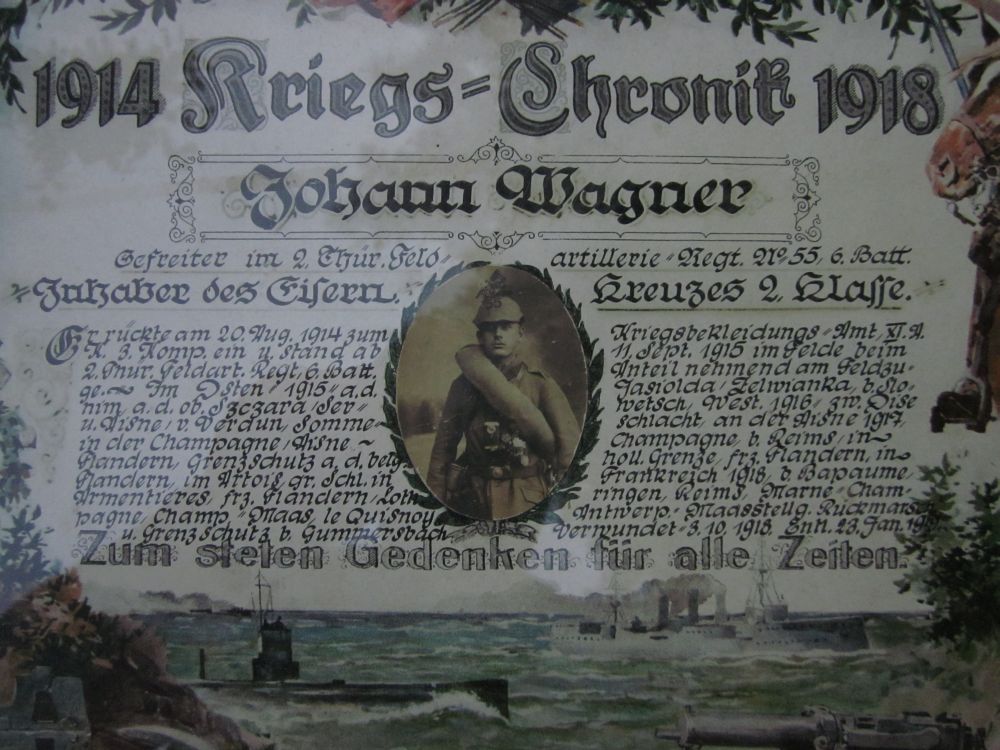 1914 Kriegs=Chronik 1918
Johann Wagner
Gefreiter im 2. Thür. Feld= artillerie=Regt. No. 55, 6. Batt.
Inhaber des Eisern. Kreuzes 2. Klasse.
Er rückte am 20. Aug. 1914 zum Kriegsbekleidungs=Amt, XI. A.
K. 3. Komp. ein u. stand ab 11. Sept. 1915 im Felde beim
2. Thür. Feldart. Regt. 6. Batt. Anteil nehmend am Feldzu-
ge~ Im Osten 1915 a. d. Jasiolda, Zelwianka, b. Slo-
nim a. d. ob. Szczara, Ser- wetsch, West. 1916 zw. Oise
u. Aisne, v. Verdun, Somme- schlacht, an der Aisne 1917
in der Champagne, Aisne ~ Champagne, b. Reims, in~
Flandern, Grenzschutz a. d. belg. holl. Grenze, frz. Flandern, in
Flandern, im Artois gr. Schl. in Frankreich 1918, b. Bapaume,
Armentieres, frz. Flandern, Loth ringen, Reims, Marne=Cham-
pagne, Champ.=Maas, le Quisnoy Antwerp.=Maasstellg. Rückmarsch
u. Grenzschutz b. Gummersbach Verwundet 3.10.1918. Entl. 23. Jan.
Zum steten Gedenken für alle Zeiten.